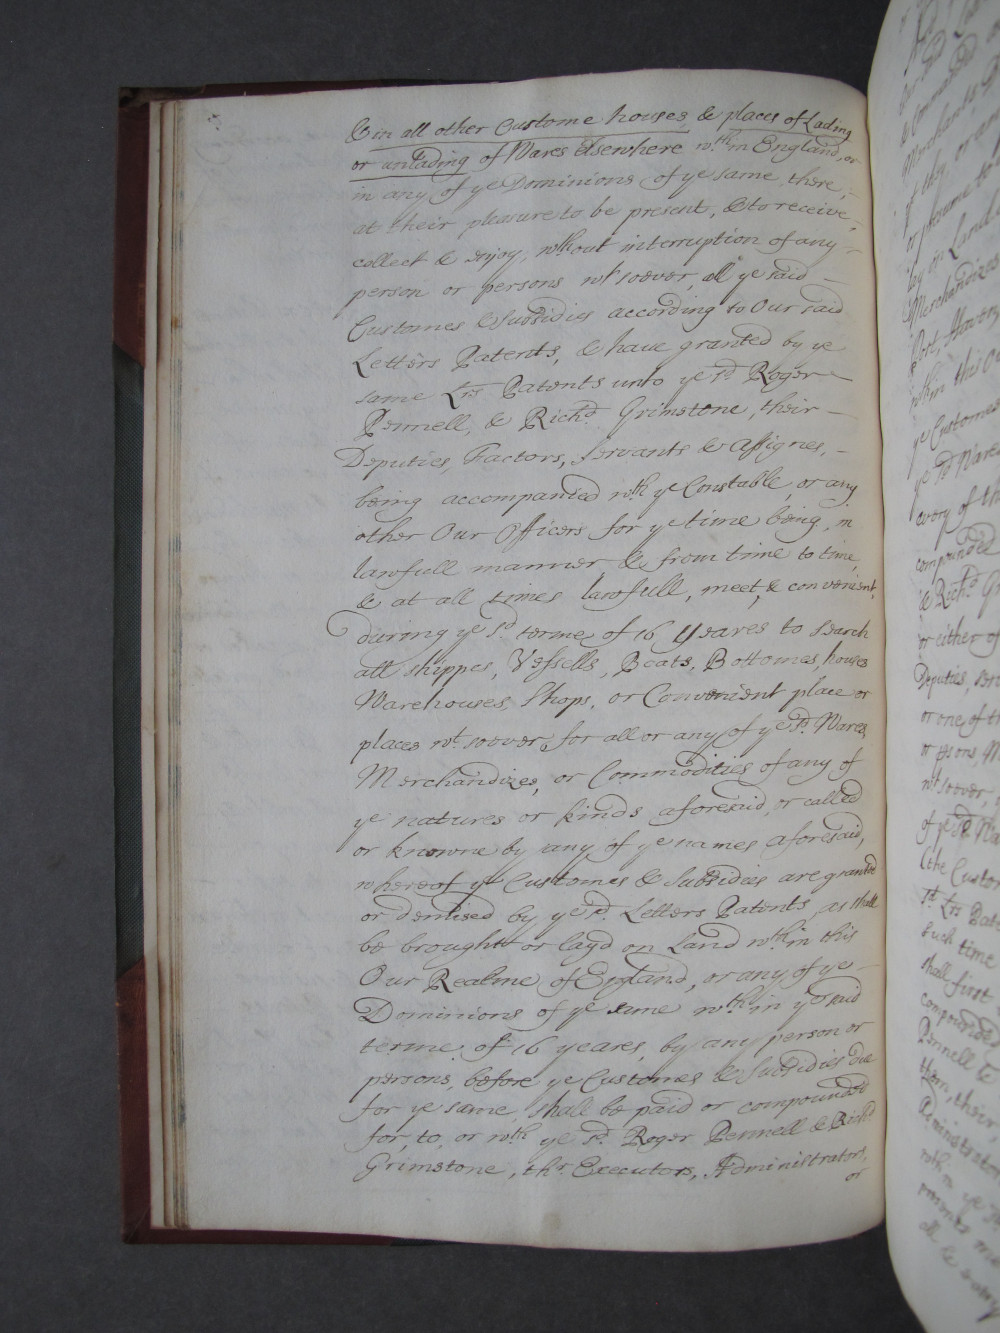 & in all other Custome houses, & places of Lading
or unlading of Wares elsewhere wth in England, or
in any of ye Dominions of ye same, there,
at their pleasure to be present, & to receive,
collect & enjoy, wthout interruption of any
person or persons wt soever, all ye said
Customes & Subsidies according to Our said
Letters Patents, & have granted by ye
same Lrs Patents unto ye sd Roger
Pennell, & Richd Grimstone, their
Deputies, Factors, Servants & Assignes,
being accompanied wth ye Constable, or any
other Our Officers for ye time being, in
lawfull manner & from time to time,
& at all times lawfull, meet, & convenient,
during ye sd terme of 16 Yeares to search
all shippes, Vessells, Boats, Bottomes, houses
Warehouses, Shops, or Convenient place or
places wt soever, for all or any of ye sd Wares,
Merchandizes, or Commodities of any of
ye natures or kinds aforesaid, or called
or knowne by any of ye names aforesaid,
whereof ye Customes & Subsidies are granted
or demised by ye sd Letters Patents, as shall
be brought or layd on Land wthin this
Our Realme of England, or any of ye
Dominions of ye same wth in ye said
terme of 16 yeares, by any person or
persons, before ye Customes & Subsidies due
for ye same, shall be paid or compounded
for, to, or wth ye sd Roger Pennell & Richd
Grimstone, thr Executors, Administrators,
or
Merchandizes
Port, Haven,
wthin this O
ye Customes
ye sd Wares
every of th
compounded
& Richd G
or either of
Deputies, ser
or one of th
wt soever,
of ye sd Wa
(the Custom
sd Lrs Pate
such time
shall first
compounded
Pennell &
them, their,
Administrators
wth in ye